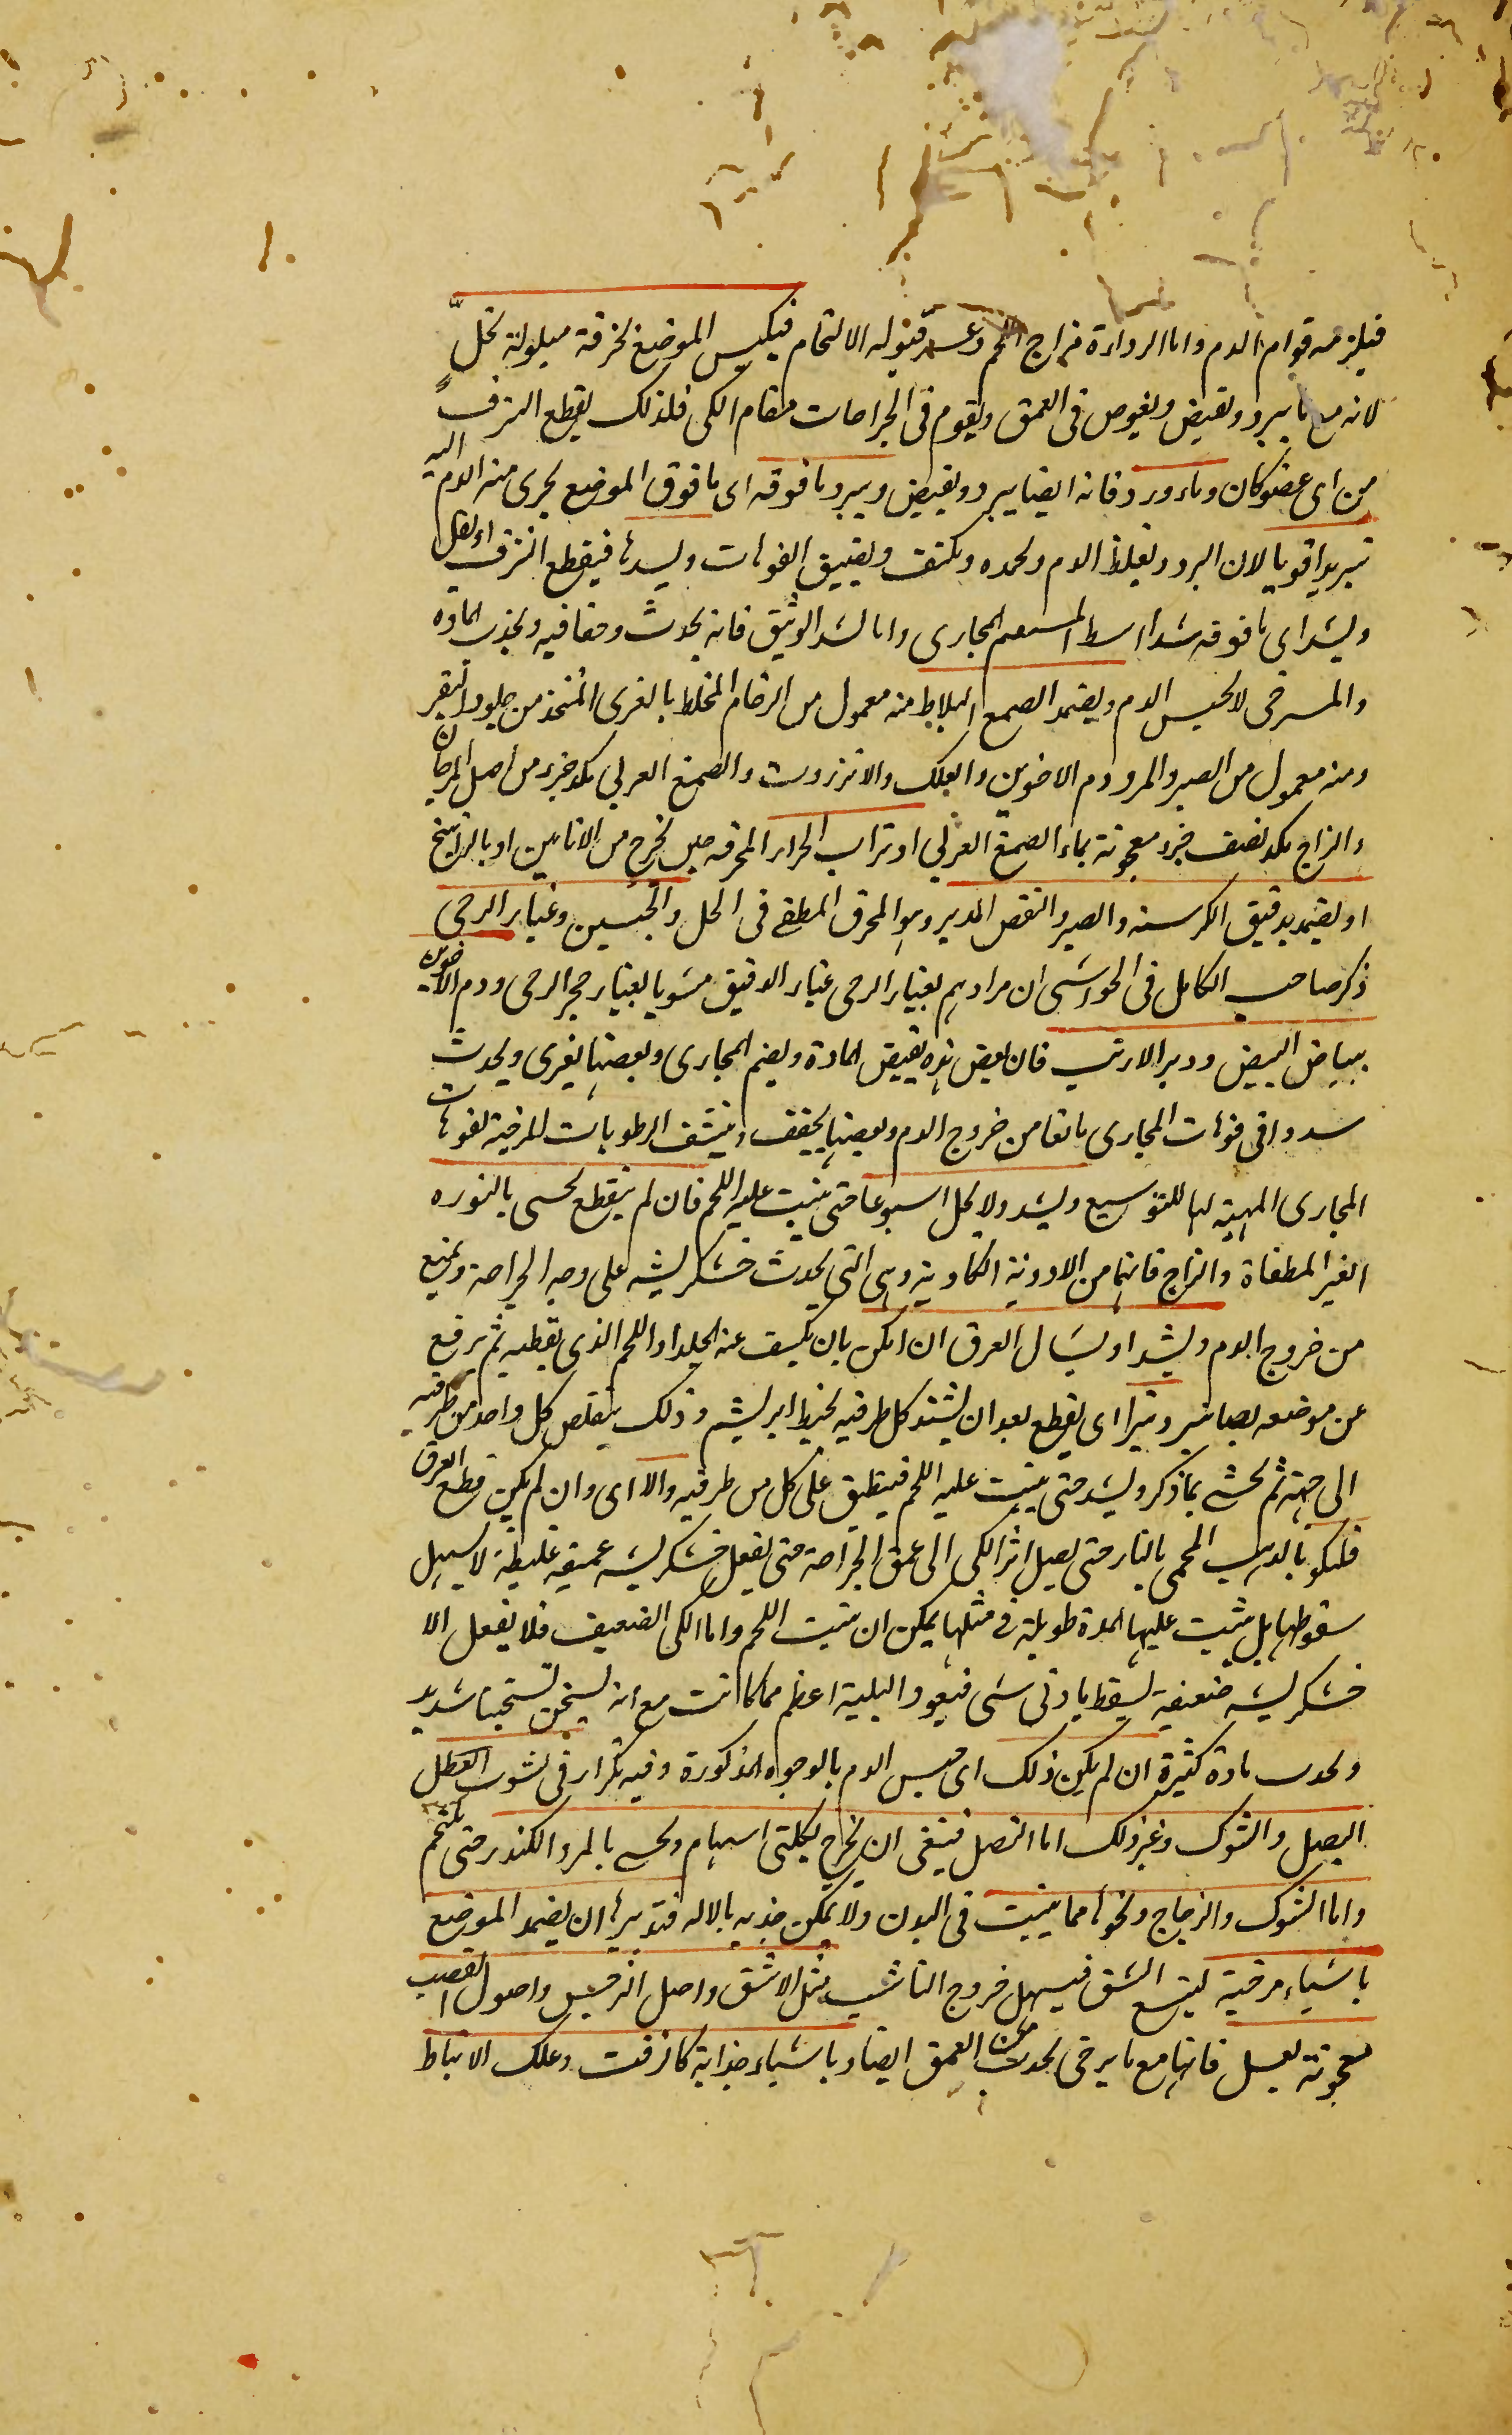 فيلزمه قوام الدم واما الرداءة مزاج اللحم وعسر قبوله الالتحام فيكبس الموضع بخرقة مبلولة بخل
لانه مع ما يبرد ويقبض ويغوص فى العمق ويقوم فى الجراحات مقام الكى فلذلك يقطع النزف
من اى عضو كان وماء ورد فانه ايضا يبرد ويقبض ويبرد ما فوقه اى ما فوق الموضع يجرى منه الدم اليه
تبريدا قويا لان البرد ويغلظ الدم ويجمده ويكثف ويضيق الفوهات ويسدها فيقطع النزف او يقل
ويشد اى ما فوقه شدا وسط المجارى واما الشد الوثيق فانه يحدث وجعا فيه ويجذب المادة
والمسرخى لا يحبس الدم ويضمد الصمغ البلاط منه معمول من الرخام المخلط بالغرى المتخذ من جلود البقر
ومنه معمول من الصبر والمر ودم الاخوين والعلك والانزروت والصمغ العربي مكد جزء من اصل المرجان
والزاج مكد نصف جزء معجونة بماء الصمغ العربي او تراب الجرار المحرقه حين يخرج من الاتاتين او بالزرنيخ
او يضمد بدقيق الكرسنه والصبر والعفص المدبر وهو المحرق المطفى فى الخل والجبسين وغبار الرحى
ذكر صاحب الكامل فى الحواشى ان مرادهم بغبار الرحى غبار الدقيق مشويا بغبار حجر الرحى ودم الاخوين
ببياض البيض ووبر الارنب فان بعض هذه يقبض المادة ويضم المجارى وبعضها يغرى ويحدث
سددا فى فوهات المجارى مانعا من خروج الدم وبعضها يجفف وينشف الرطوبات المرخية لفوهات
المجارى المهيئه لها للتوسيع ويشد ولا يحل اسبوعا حتى ينبت عليه اللحم فان لم ينقطع يحشى بالنوره
الغير المطفاة والزاج فانهما من الادوية الكاوية وهى التى يحدث خشكريشه على وجه الجراحة ويمنع
من خروج الدم ويشد او يشال العرق ان امكن بان يكشف عنه الجلد او اللحم الذى يغطيه ثم يرفع
عن موضعه بصنانير ويبترا اى يقطع بعد ان يشد كل طرفيه بخيط ابريشم وذلك يتقلص كل واحد من طرفيه
الى جهته ثم يحشى بما ذكر ويشد حتى ينبت عليه اللحم فينطبق على كل من طرفيه والا اى وان لم يكن قطع العرق
فليكو بالذهب المحمى بالنار حتى يصل اثر الكى الى عمق الجراحة حتى يفعل خشكريشه عميقه غليظة لا يسهل
سقوطها بل يثبت عليها المدة طويلة فى مثلها يمكن ان ينبت اللحم واما الكى الضعيف فلا يفعل الا
خشكريشه ضعيفة يسقط بادنى شى فيعود البلية اعظم مما كانت مع انه يسخن تسخينا شديد
ويجذب مادة كثيرة ان لم يكن ذلك اى حبس الدم بالوجوه المذكورة وفيه تكرار فى نشوب
النصل والشوك وغير ذلك اما النصل فينبغى ان يخرج بكلبتى السهام ويحشى بالمر والكندر حتى يلتحم
واما الشوك والزجاج ونحوهما مما ينبت فى البدن ولا يمكن جذبه بالاله فتدبيرها ان يضمد الموضع
باشياء مرخية ليتسع الشق فيسهل خروج الناشب مثل الاشق واصل النرجس واصول القصب
معجونة بعسل فانها مع ما يرخى يجذب من العمق ايضا وباشياء جذابة كالزفت وعلك الانباط